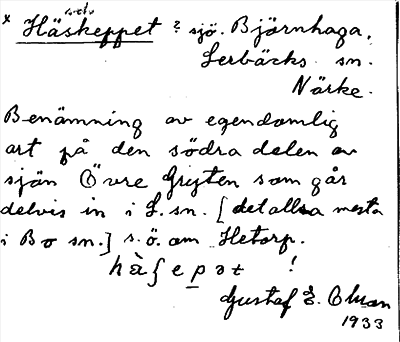 x Häskeppet ? sjö. Björnhaga,
Lerbäcks sn.
Närke.
Benämning av egendomlig
art på den södra delen av
sjön Övre Gryten som går
delvis in i L. sn. [det allra mesta
i Bo sn.] s.ö. om Hetorp.
hàʃepət !
Gustaf E. Olsson
1933